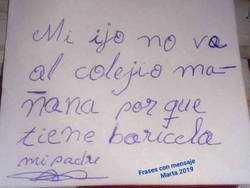 Mi ijo no va
al colejio ma-
ñana por que
tiene baricela
mi padre
Frases con mensaje
Marta 2019